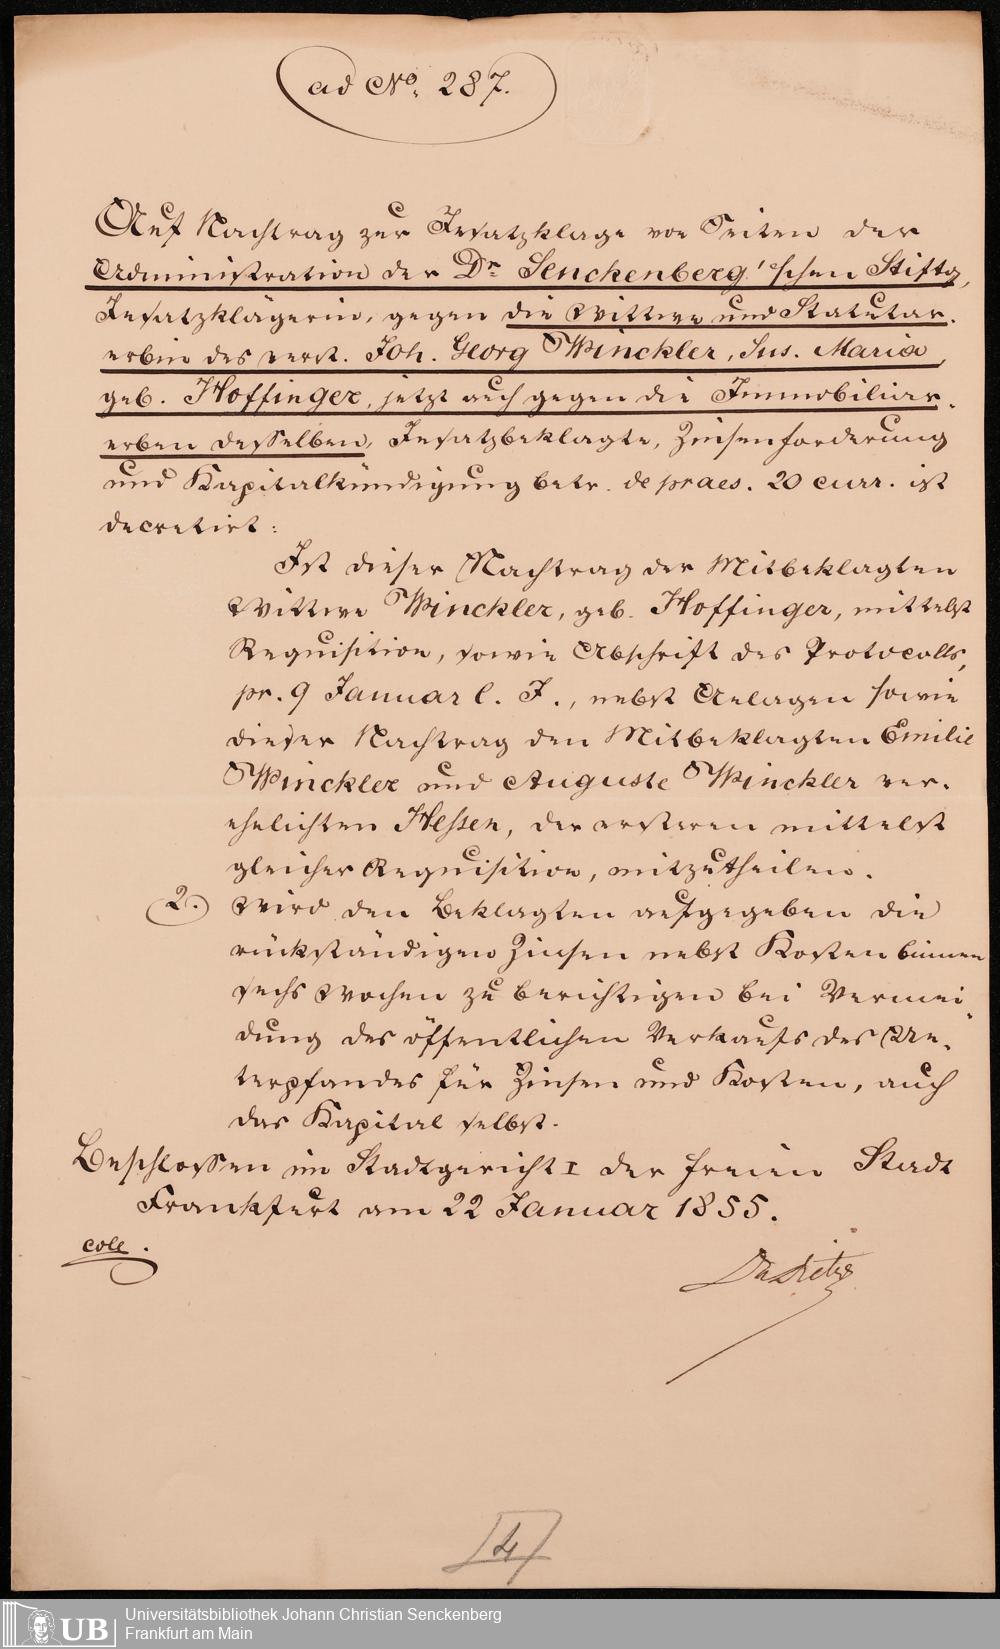 ad No. 287.
Auf Nachtrag zur Insatzklage von Seiten der
Administration der Dr. Senckenberg'schen Stiftg,
Insatzklägerin, gegen die Wittwe und Statutar-
erbin des verst. Joh. Georg Winckler, Sus. Maria,
geb. Hoffinger, jetzt auch gegen die Immobiliar-
erben desselben, Insatzbeklagte, Zinsenforderung
und Kapitalkündigung betr. de praes. 20 curr. ist
decretirt:
Ist dieser Nachtrag der Mitbeklagten
Wittwe Winckler, geb. Hoffinger, mittelst
Requisition, sowie Abschrift des Protocolls,
pr. 9 Januar l. J., nebst Anlagen sowie
dieser Nachtrag den Mitbeklagten Emilie
Winckler und Auguste Winckler ver-
ehelichten Hessen, der ersteren mittelst
gleicher Requisition, mitzutheilen.
2. Wird den Beklagten aufgegeben die
rückständigen Zinsen nebst Kosten binnen
sechs Wochen zu berichtigen bei Vermei-
dung des öffentlichen Verkaufs des Un-
terpfandes für Zinsen und Kosten, auch
das Kapital selbst.
Beschlossen im Stadtgericht I der freien Stadt
Frankfurt am 22 Januar 1855.
coll.
4
Universitätsbibliothek Johann Christian Senckenberg
UB
Frankfurt am Main